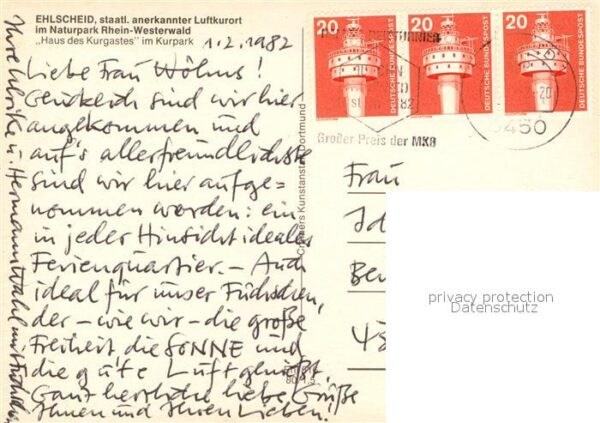 EHLSCHEID, staatl. anerkannter Luftkurort
im Naturpark Rhein-Westerwald
„Haus des Kurgastes" im Kurpark
1.2.1982
Liebe Frau Wöhns!
Glücklich sind wir hier
angekommen und
auf's allerfreundlichste
sind wir hier aufge=
nommen worden: ein
in jeder Hinsicht ideales
Ferienquartier. – Auch
ideal für unser Füchschen,
der – wie wir – die große
Freiheit die SONNE und
die gute Luft genießt.
Ganz herzliche liebe Grüße
Ihnen und Ihren Lieben!
Ihre Ulrike u. Hermann Wahl mit
Cramers Kunstanstalt Dortmund
20
20
20
DEUTSCHE BUNDESPOST
DEUTSCHE BUNDESPOST
DEUTSCHE BUNDESPOST
Großer Preis der MKB
5450
Frau
privacy protection
Datenschutz